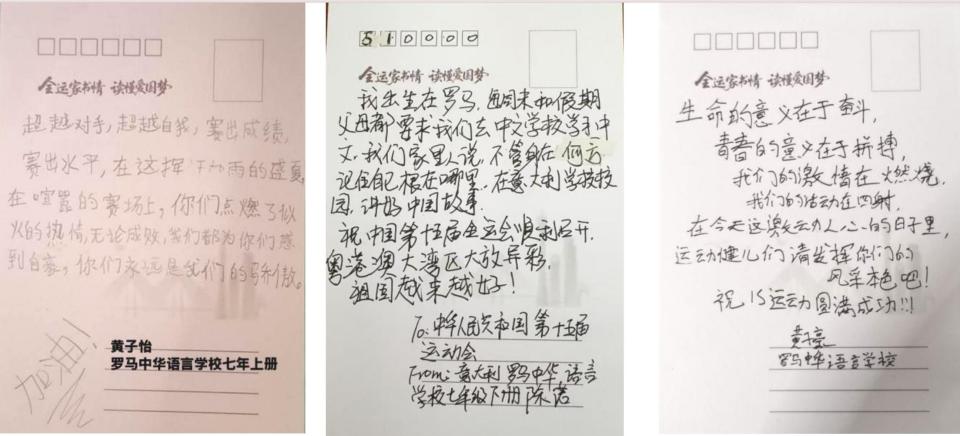 全运家书情 读懂爱国梦
超越对手,超越自我,赛出成绩,
赛出水平,在这挥汗如雨的盛夏
在喧嚣的赛场上,你们点燃了似
火的热情,无论成败,我们都为你们感
到自豪,你们永远是我们的骄傲。
加油!
黄子怡
罗马中华语言学校七年上册
510000
全运家书情 读懂爱国梦
我出生在罗马,每周末和假期
父母都要求我们去中文学校学习中
文,我们家里人说,不管身在何方
记住自己根在哪里,在意大利学校校
园,讲好中国故事.
祝中国第十五届全运会顺利召开.
粤港澳大湾区大放异彩,
祖国越来越好!
To:中华人民共和国第十五届
运动会
From:意大利罗马中华语言
学校七年级下册 陈诺
全运家书情 读懂爱国梦
生命的意义在于奋斗,
青春的意义在于拼搏,
我们的激情在燃烧,
我们的活动在四射,
在今天这激动人心的日子里,
运动健儿们请发挥你们的
风采本色吧!
祝15运动圆满成功!!!
黄亮
罗马中华语言学校